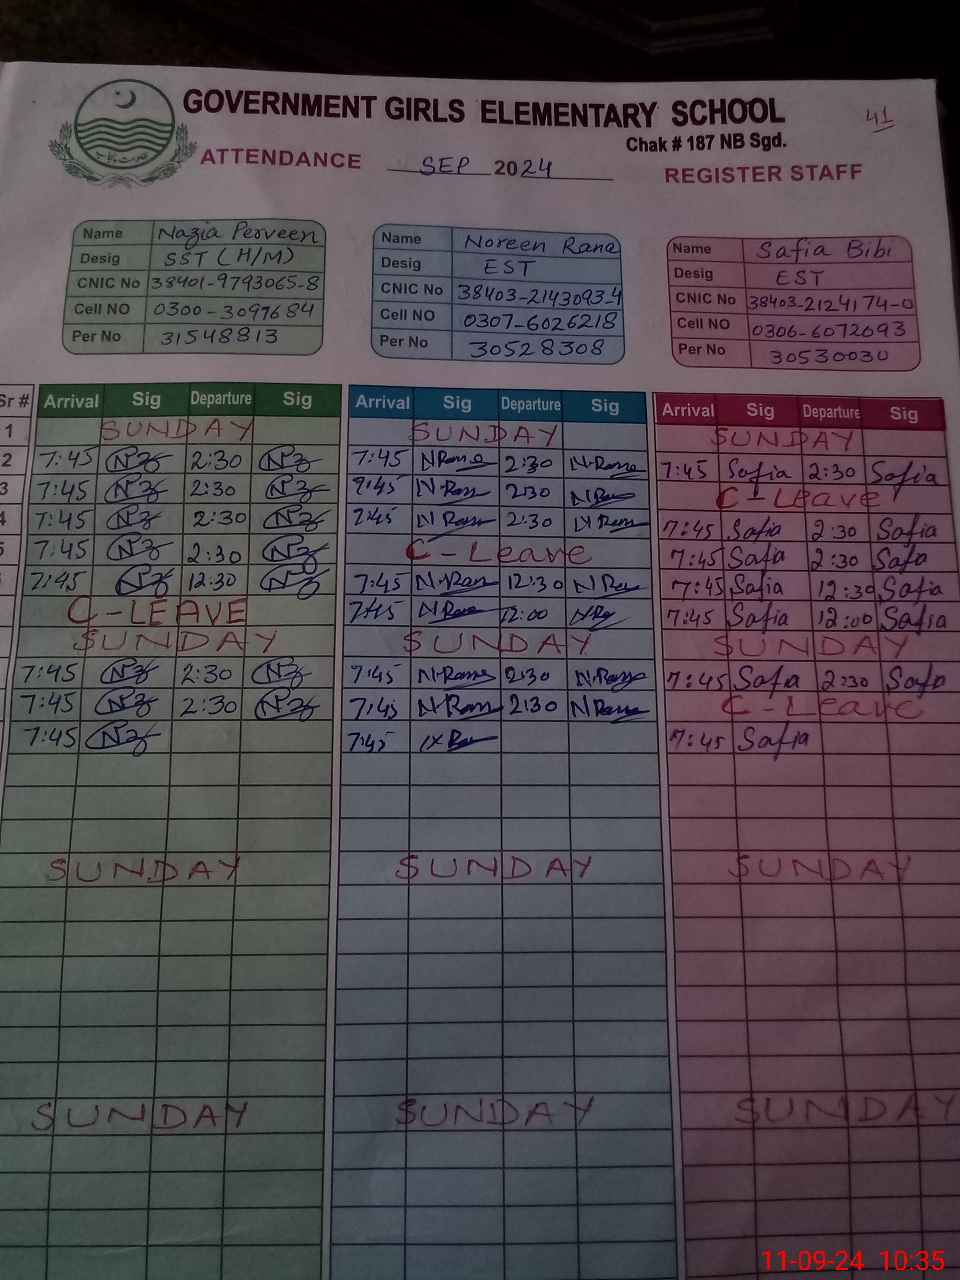 GOVERNMENT GIRLS ELEMENTARY SCHOOL
41
Chak # 187 NB Sgd.
ATTENDANCE SEP 2024 REGISTER STAFF
Name Nazia Perveen
Desig SST (H/M)
CNIC No 38401-9793065-8
Cell NO 0300-3097684
Per No 31548813
Name Noreen Rana
Desig EST
CNIC No 38403-2143093-4
Cell NO 0307-6026218
Per No 30528308
Name Safia Bibi
Desig EST
CNIC No 38403-2124174-0
Cell NO 0306-6072093
Per No 30530030
Sr # Arrival Sig Departure Sig Arrival Sig Departure Sig Arrival Sig Departure Sig
1 SUNDAY SUNDAY SUNDAY
2 7:45 Nz 2:30 Nz 7:45 N Rana 2:30 N.Rana 7:45 Safia 2:30 Safia
3 7:45 Nz 2:30 Nz 7:45 N.Rana 2:30 N Rana C-Leave
4 7:45 Nz 2:30 Nz 7:45 N Rana 2:30 N Rana 7:45 Safia 2:30 Safia
5 7:45 Nz 2:30 Nz C-Leave 7:45 Safia 2:30 Safia
7:45 Nz 12:30 Nz 7:45 N.Rana 12:30 N Rana 7:45 Safia 12:30 Safia
C-LEAVE 7:45 N Rana 12:00 7:45 Safia 12:00 Safia
SUNDAY SUNDAY SUNDAY
7:45 Nz 2:30 Nz 7:45 N.Rana 2:30 N.Rana 7:45 Safia 2:30 Safia
7:45 Nz 2:30 Nz 7:45 N.Rana 2:30 N Rana C-Leave
7:45 Nz 7:45 7:45 Safia
SUNDAY SUNDAY SUNDAY
SUNDAY SUNDAY SUNDAY
11-09-24 10:35